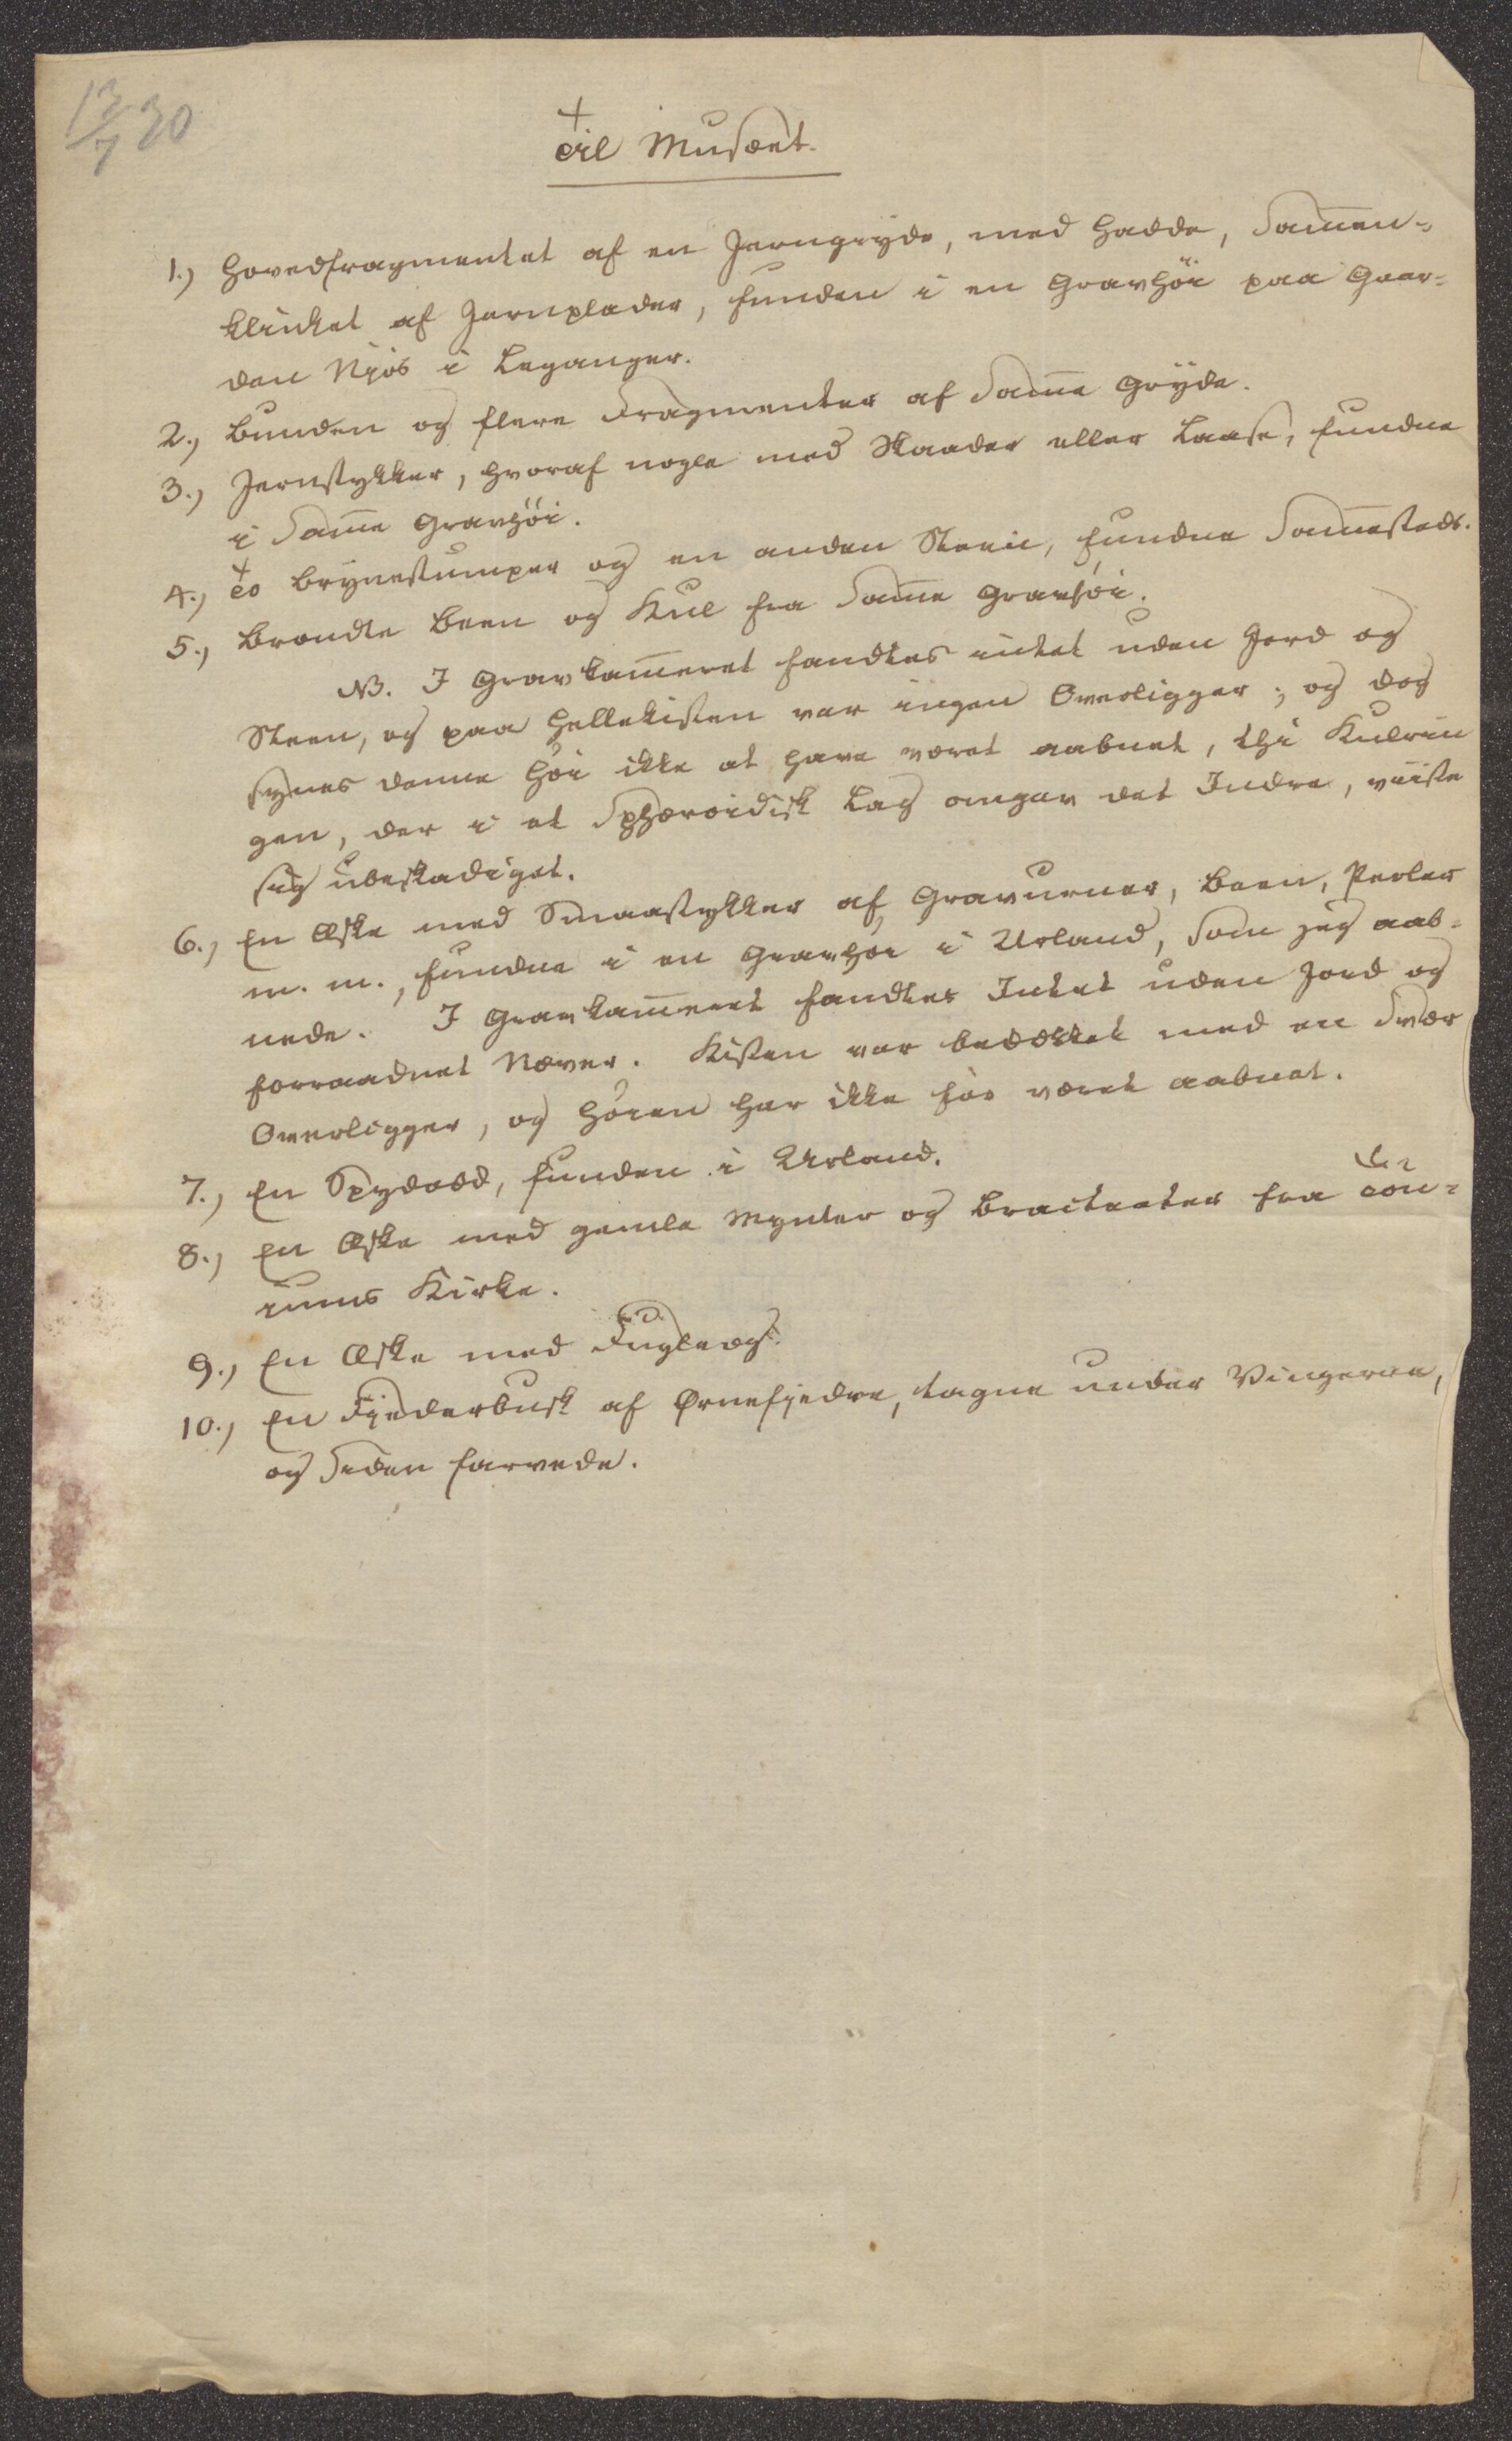 13/7 30
Til Musæet.
1.) Hovedfragmentet af en Jerngryde, med Hadde, sam̅en-
klinket af Jernplader, funden i en Gravhöi paa Gaar-
den Njøs i Leganger.
2.) Bunden og flere Fragmenter af sam̅e Gryde.
3.) Jernstykker, hvoraf nogle med Skaader eller Laase, fundne
i sam̅e Gravhöi.
4.) To Brynestumper og en anden Steen, fundne sam̅esteds.
5.) Brændte Been og Kul fra sam̅e Gravhöi.
NB. I Gravkam̅eret fandtes intet uden Jord og
Steen, og paa Hellekisten var ingen Overligger; og dog
synes denne Höi ikke at have været aabnet, thi Kulrin
gen, der i et sphæroidisk Lag omgav det Indre, viiste
sig ubeskadiget.
6.) En Æske med Smaastykker af Gravurner, Been, Perler
m. m., fundne i en Gravhøi i Urland, som jeg aab-
nede. I Gravkam̅eret fandtes Intet uden Jord og
forraadnet Næver. Kisten var bedækket med en svær
Overligger, og Höien har ikke før været aabnet.
7.) En Spydodd, funden i Urland.
8.) En Æske med gamle Mynter og Bracteater fra Tön-
jums Kirke.
9.) En Æske med Fugleæg.
10.) En Fjederbusk af Ørnefjedre, tagne under Vingerne,
og siden farvede.